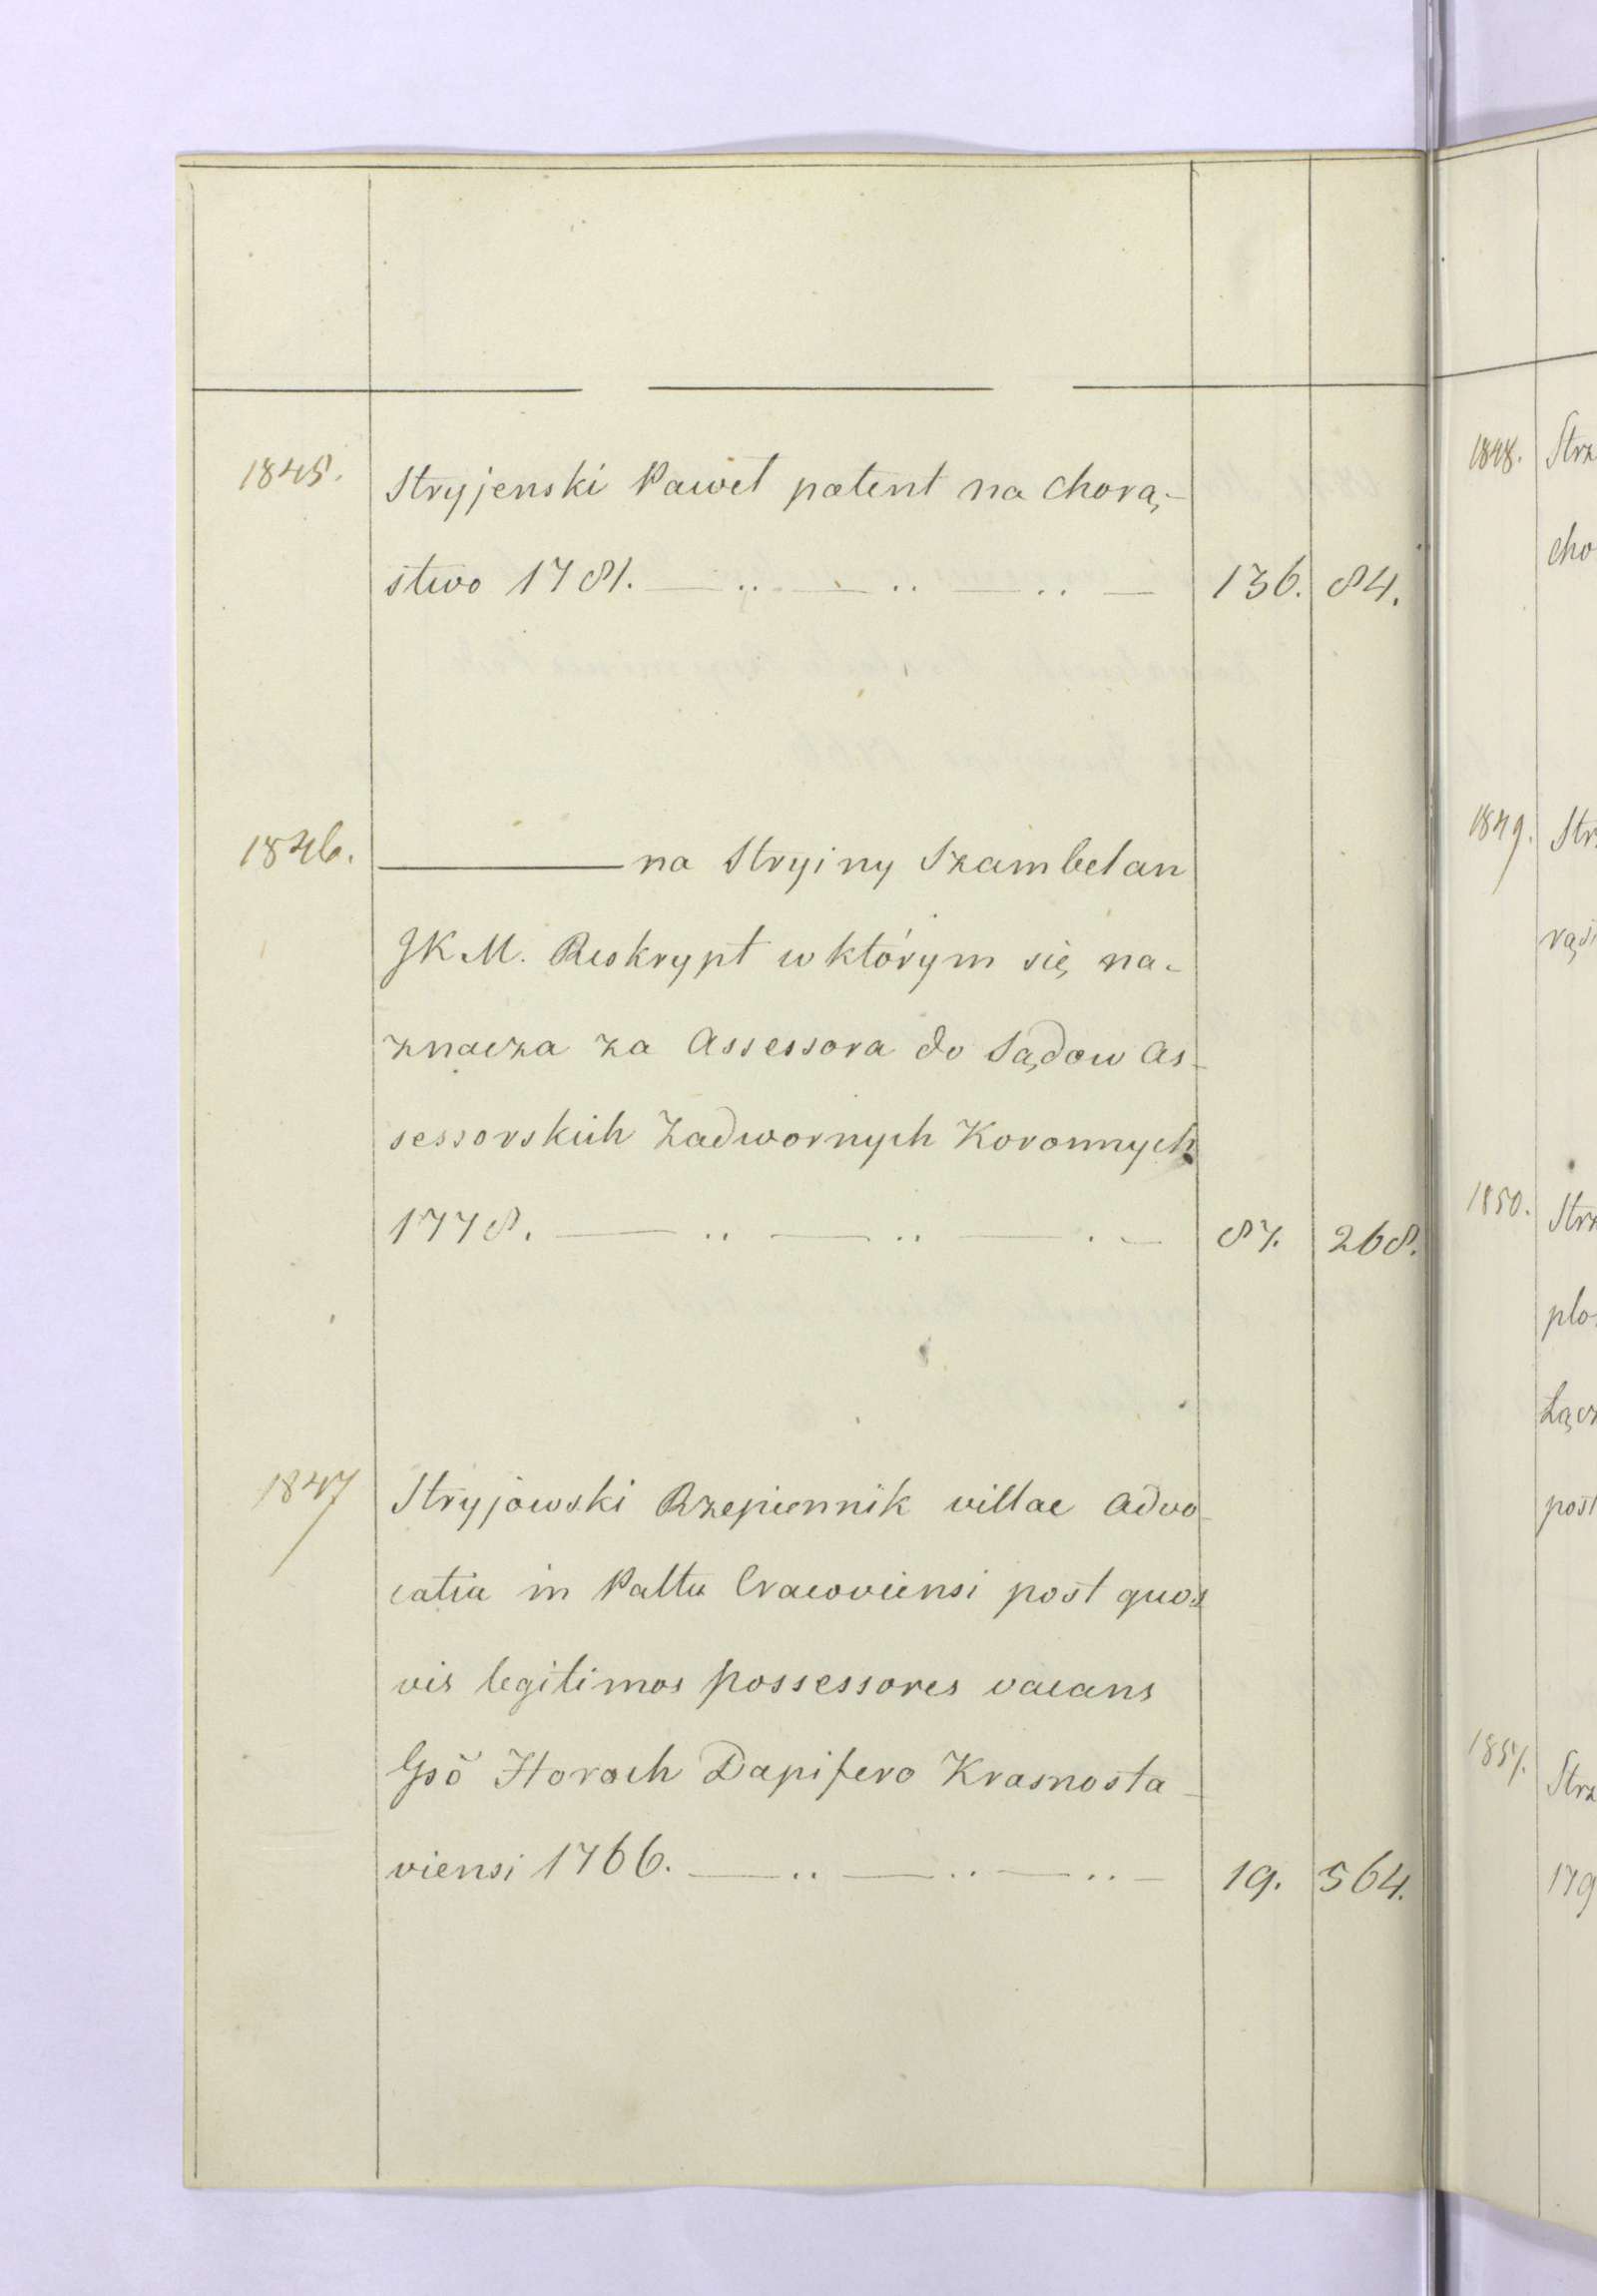 1845. Stryjenski Paweł patent na chorą-
stwo 1781. 136. 84.
1846. na Stryiny Szambelan
JKM. Reskrypt w którym się na-
znacza za Assessora do Sądow As-
sessorskich Zadwornych Koronnych
1778. 87. 268.
1847 Stryjowski Rzepiennik villae advo-
catia in Palttu Cracoviensi post quos
vis legitimos possessores vacans
Gsõ Horoch Dapifero Krasnosta-
viensi 1766. 19. 564.
1848. Strz
cho
1849. Str
rąs
1850. Strz
plo
Łącz
post
1851. Strz
179